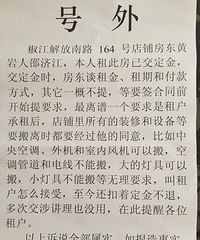 号 外
椒江解放南路 164 号店铺房东黄
岩人邵济江,本人租此房已交定金,
交定金时,房东谈租金、租期和付款
方式,其它一概不提,等要签合同前
开始提要求,最离谱一个要求是租户
承租后,店铺里所有的装修和设备等
要搬离时都要经过他的同意,比如中
央空调、外机和室内风机可以搬,空
调管道和电线不能搬,大的灯具可以
搬,小灯具不能搬等无理要求,叫租
户怎么接受,至今还扣着定金不退,
多次交涉讲理也没用,在此提醒各位
租户。
以上诉说全部属实,如捏造事实